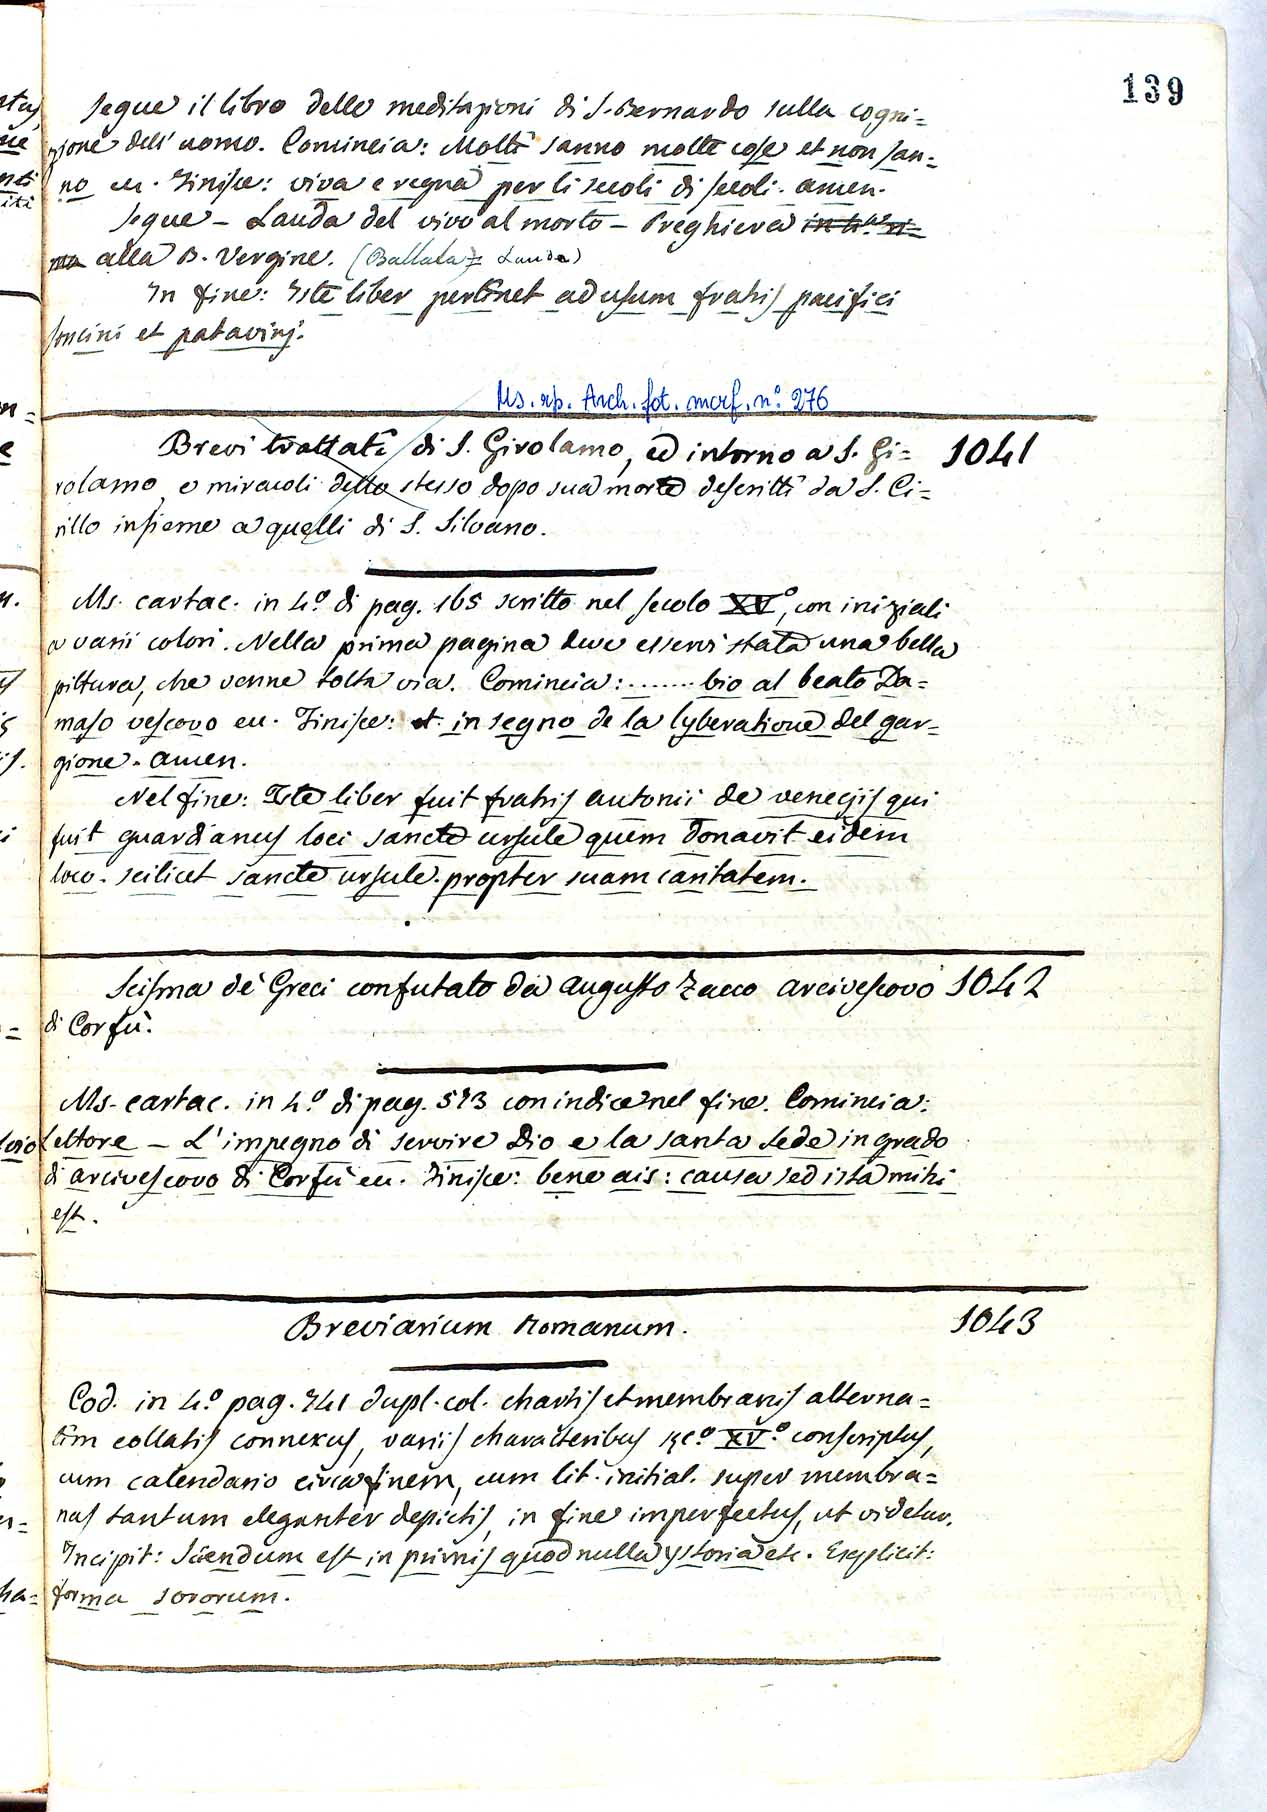 139
Segue il libro delle meditazioni di S. Bernardo sulla cogni=
zione dell' uomo. Comincia: Molti sanno molte cose et non san=
no ec. Finisce: viva e regna per li secoli di secoli. amen.
Segue – Lauda del vivo al morto – Preghiera in 4.ª ri=
ma alla B. Vergine. (Ballata = Lauda)
In fine: Iste liber pertinet ad usum fratris pacifici
soncini et patavinj.
Ms. rip. Arch. fot. morf. n.° 276
Brevi trattati di S. Girolamo, ed intorno a S. Gi= 1041
rolamo, e miracoli dello stesso dopo sua morte descritti da S. Ci=
rillo insieme a quelli di S. Silvano.
Ms. cartac. in 4.° di pag. 165 scritto nel secolo XV°, con iniziali
a varii colori. Nella prima pagina deve esservi stata una bella
pittura, che venne tolta via. Comincia: ....... bio al beato Da=
maso vescovo ec. Finisce: et in segno de la lyberatione del gar=
gione. amen.
Nel fine: Iste liber fuit fratris antonii de venecijs qui
fuit guardianus loci sancte ursule quem donavit eidem
loco. scilicet sancte ursule. propter suam caritatem.
Scisma de' Greci confutato da Augusto Zacco arcivescovo 1042
di Corfù.
Ms. cartac. in 4.° di pag. 573 con indice nel fine. Comincia:
Lettore – L'impegno di servire Dio e la santa Sede in grado
di arcivescovo di Corfù ec. Finisce: bene ais: causa sed ista mihi
est.
Breviarium Romanum. 1043
Cod. in 4.° pag. 741 dupl. col. chartis et membranis alterna=
tim collatis connexus, variis characteribus sec.° XV.° conscriptus,
cum calendario circa finem, cum lit. initial. super membra=
nas tantum eleganter depictis, in fine imperfectus, ut videtur.
Incipit: Sciendum est in primis quod nulla ystoria etc. Explicit:
forma sororum.